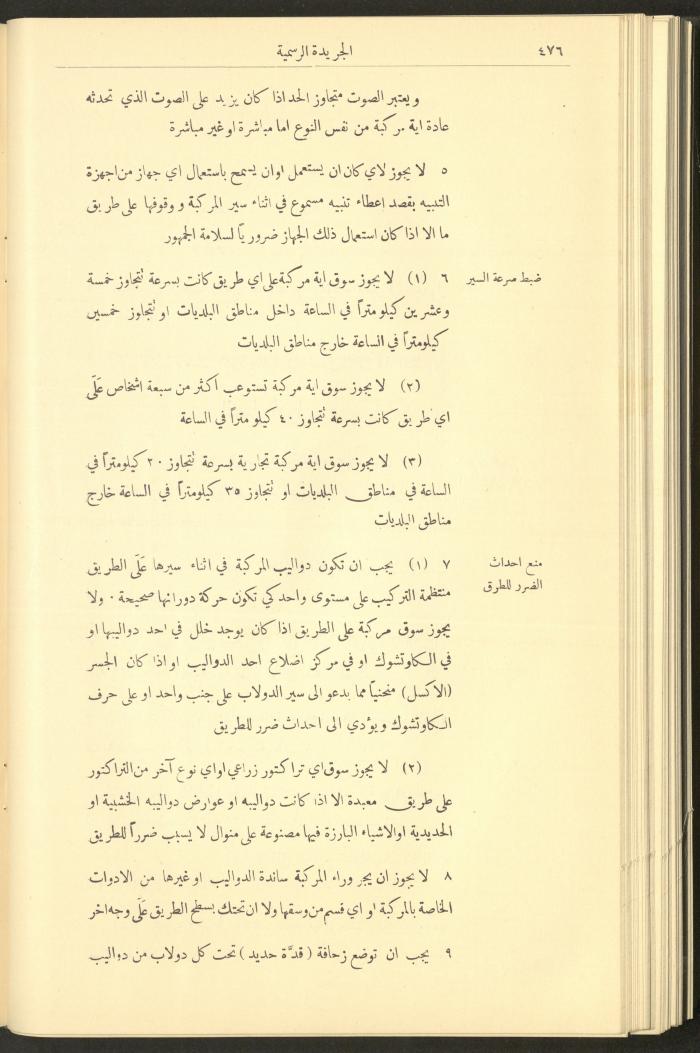 ٤٧٦
الجريدة الرسمية
ويعتبر الصوت متجاوز الحد اذا كان يزيد على الصوت الذي تحدثه
عادة اية مركبة من نفس النوع اما مباشرة او غير مباشرة
٥ لا يجوز لاي كان ان يستعمل او ان يسمح باستعمال اي جهاز من اجهزة
التنبيه بقصد اعطاء تنبيه مسموع في اثناء سير المركبة ووقوفها على طريق
ما الا اذا كان استعمال ذلك الجهاز ضرورياً لسلامة الجمهور
ضبط سرعة السير
٦ (١) لا يجوز سوق اية مركبة على اي طريق كانت بسرعة تتجاوز خمسة
وعشرين كيلومتراً في الساعة داخل مناطق البلديات او تتجاوز خمسين
كيلومتراً في الساعة خارج مناطق البلديات
(٢) لا يجوز سوق اية مركبة تستوعب اكثر من سبعة اشخاص عَلَى
اي طريق كانت بسرعة تتجاوز ٤٠ كيلو متراً في الساعة
(٣) لا يجوز سوق اية مركبة تجارية بسرعة تتجاوز ٢٠ كيلومتراً في
الساعة في مناطق البلديات او تتجاوز ٣٥ كيلومتراً في الساعة خارج
مناطق البلديات
منع احداث
الضرر للطرق
٧ (١) يجب ان تكون دواليب المركبة في اثناء سيرها عَلَى الطريق
منتظمة التركيب على مستوى واحد كي تكون حركة دورانها صحيحة ٠ ولا
يجوز سوق مركبة على الطريق اذا كان يوجد خلل في احد دواليبها او
في الكاوتشوك او في مركز اضلاع احد الدواليب او اذا كان الجسر
(الاكسل) منحنياً مما يدعو الى سير الدولاب على جنب واحد او على حرف
الكاوتشوك ويؤدي الى احداث ضرر للطريق
(٢) لا يجوز سوق اي تراكتور زراعي او اي نوع آخر من التراكتور
على طريق معبدة الا اذا كانت دواليبه او عوارض دواليبه الخشبية او
الحديدية او الاشياء البارزة فيها مصنوعة على منوال لا يسبب ضرراً للطريق
٨ لا يجوز ان يجر وراء المركبة ساندة الدواليب او غيرها من الادوات
الخاصة بالمركبة او اي قسم من وسقها ولا ان تحتك بسطح الطريق عَلَى وجه اخر
٩ يجب ان توضع زحافة (قدَّة حديد) تحت كل دولاب من دواليب